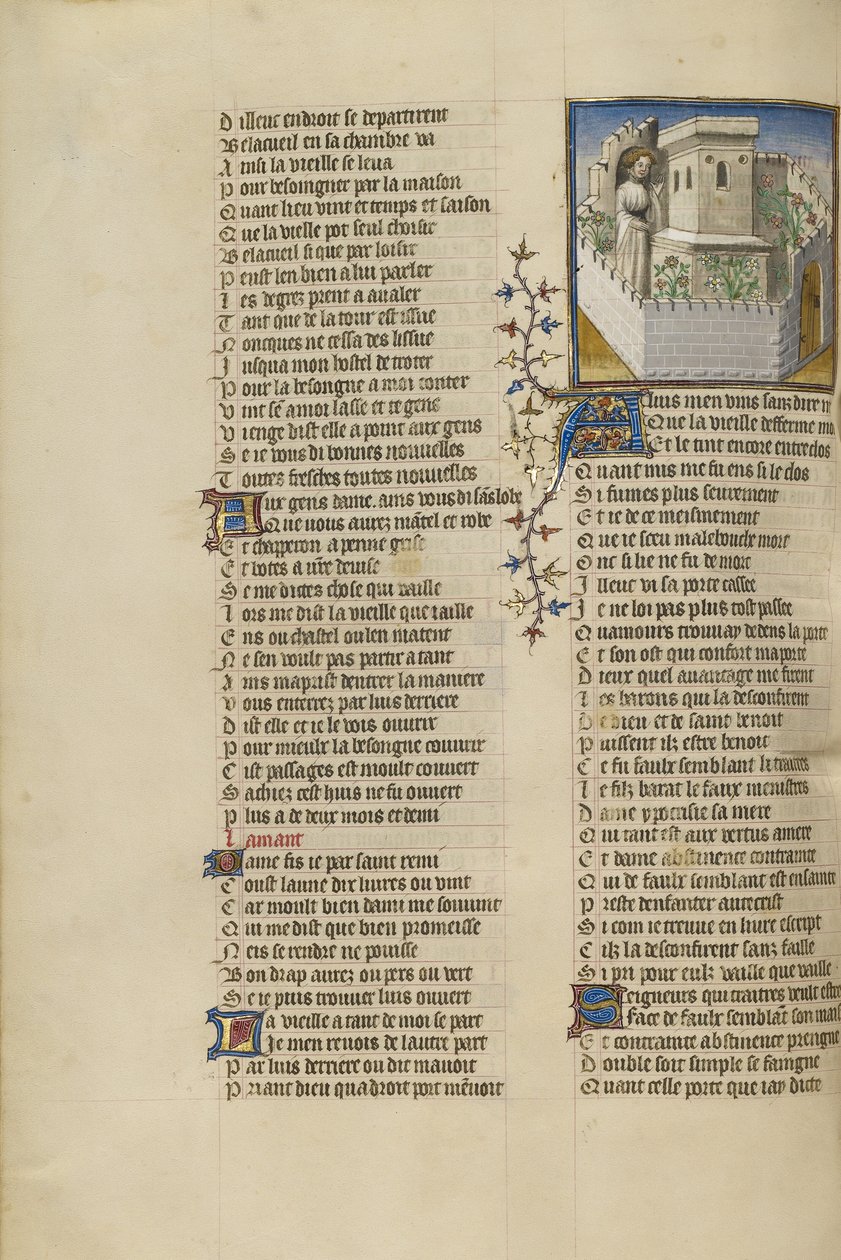 D illeuc endroit se departirent
B elacueil en sa chambre va
A insi la vieille se leua
P our besoingner par la maison
Q uant lieu vint et temps et saison
Q ue la vielle pot seul choisir
B elacueil si que par loisir
P eust len bien a lui parler
L es degrez prent a aualer
T ant que de la tour est issue
N oncques ne cessa des lissue
J usqua mon hostel de troter
P our la besongne a moi conter
V int sen a moi lasse et te gens
V ienge dist elle a point aux gens
S e ie vous di bonnes nouuelles
T outes fresches toutes nouuelles
A ux gens dame. ains vous di sãs lobe
Q ue vous aurez mãtel et robe
E t chapperon a penne grise
E t botes a vr̃e deuise
S e me dictez chose qui vaille
L ors me dist la vieille que iaille
E ns ou chastel ou len matent
N e sen voult pas partir a tant
A ins maprist dentrer la maniere
V ous enterrez par luis derriere
D ist elle et ie le vois ouurir
P our mieulx la besongne couurir
C ist passages est moult couuert
S achiez cest huis ne fu ouuert
P lus a de deux mois et demi
L amant
D ame fis ie par saint remi
C oust laune dix liures ou vint
C ar moult bien dami me souuint
Q ui me dist que bien promeisse
N eis se rendre ne pouisse
B on drap aurez ou pers ou vert
S e ie puis trouuer luis ouuert
L a vieille a tant de moi se part
J e men reuois de lautre part
P ar luis derriere ou dit mauoit
P riant dieu qua droit port mẽuoit
A luis men vins sanz dire
Q ue la vieille defferme
E t le tint encore entreclos
Q uant mis me fu ens si le clos
S i fumes plus seurement
E t ie de ce meismement
Q ue ie sceu malebouche mort
O nc si lie ne fu de mort
J lleuc vi sa porte cassee
J e ne loi pas plus tost passee
Q uamours trouuay dedens la porte
E t son ost qui confort maporte
D ieux quel auantage me firent
L es barons qui la desconfirent
D e dieu et de saint benoit
P uissent ilz estre benoit
C e fu faulx semblant li traitres
L e filz barat le faux menistres
D ame ypocrisie sa mere
Q ui tant est aux vertus amere
E t dame abstinence contrainte
Q ui de faulx semblant est ensainte
P reste denfanter antecrist
S i com ie treuue en liure escript
C ilz la desconfirent sanz faille
S i pri pour eulz vaille que vaille
S eigneurs qui traitres veult estre
F ace de faulx semblãt son mais
E t contrainte abstinence prengne
D ouble soit simple se faingne
Q uant celle porte que iay dicte